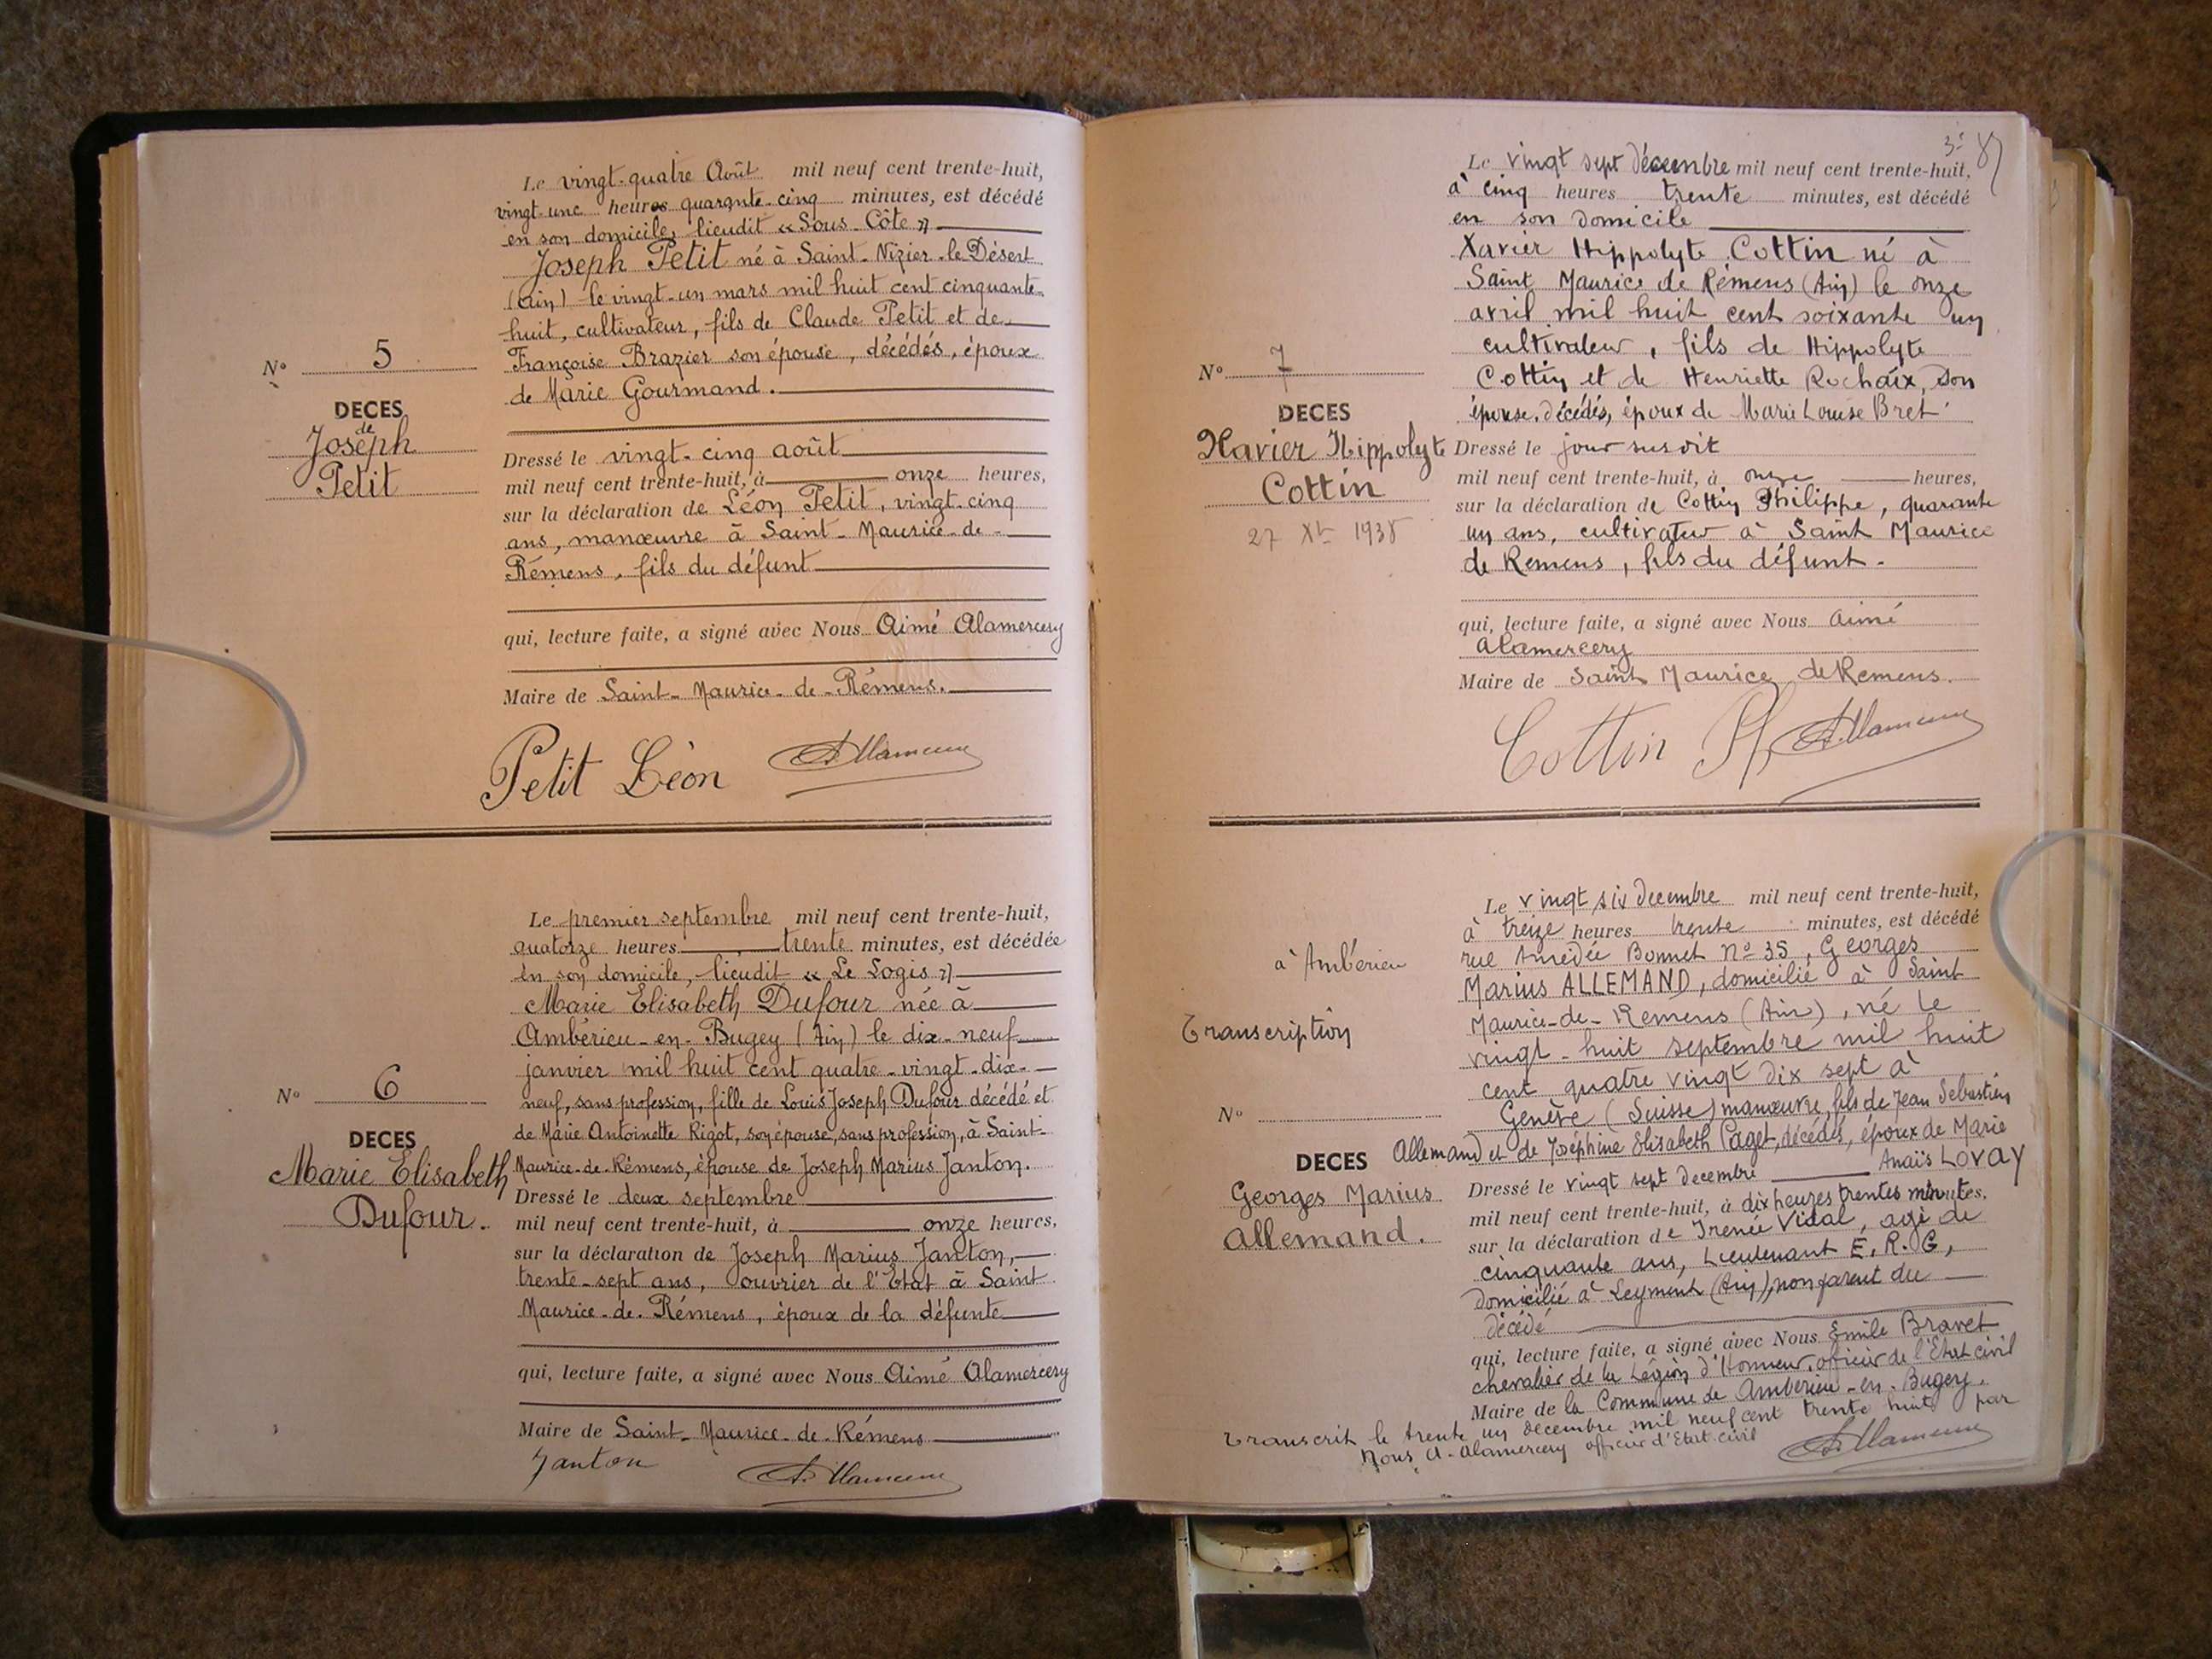 Le vingt-quatre Août mil neuf cent trente-huit,
vingt-une heures quarante-cinq minutes, est décédé
en son domicile, lieudit « Sous-Côte »
Joseph Petit né à Saint-Nizier-le-Désert
(Ain) le vingt-un mars mil huit cent cinquante-
huit, cultivateur, fils de Claude Petit et de
Françoise Brazier son épouse, décédés, époux
de Marie Gourmand.
N° 5
DECES
de
Joseph
Petit
Dressé le vingt-cinq août
mil neuf cent trente-huit, à onze heures,
sur la déclaration de Léon Petit, vingt-cinq
ans, manœuvre à Saint-Maurice-de-
Rémens, fils du défunt
qui, lecture faite, a signé avec Nous Aimé Alamercery
Maire de Saint-Maurice-de-Rémens.
Petit Léon
Le premier septembre mil neuf cent trente-huit,
quatorze heures trente minutes, est décédée
en son domicile, lieudit « Le Logis »
Marie Elisabeth Dufour née à
Ambérieu-en-Bugey (Ain) le dix-neuf
janvier mil huit cent quatre-vingt-dix-
neuf, sans profession, fille de Louis Joseph Dufour décédé et
de Marie Antoinette Rigot, son épouse, sans profession, à Saint-
Maurice-de-Rémens, épouse de Joseph Marius Janton.
N° 6
DECES
Marie Elisabeth
Dufour.
Dressé le deux septembre
mil neuf cent trente-huit, à onze heures,
sur la déclaration de Joseph Marius Janton,
trente-sept ans, ouvrier de l'Etat à Saint
Maurice-de-Rémens, époux de la défunte
qui, lecture faite, a signé avec Nous Aimé Alamercery
Maire de Saint-Maurice-de-Rémens
Janton
Le vingt sept décembre mil neuf cent trente-huit,
à cinq heures trente minutes, est décédé
en son domicile
Xavier Hippolyte Cottin né à
Saint Maurice de Rémens (Ain) le onze
avril mil huit cent soixante un
cultivateur, fils de Hippolyte
Cottin et de Henriette Rochaix, son
épouse, décédés, époux de Marie Louise Bret
N° 7
DECES
Xavier Hippolyte
Cottin
27 Xbre 1938
Dressé le jour susdit
mil neuf cent trente-huit, à onze heures,
sur la déclaration de Cottin Philippe, quarante
un ans, cultivateur à Saint Maurice
de Remens, fils du défunt.
qui, lecture faite, a signé avec Nous Aimé
Alamercery
Maire de Saint Maurice de Remens.
Cottin Ph
Le vingt six decembre mil neuf cent trente-huit,
à treize heures trente minutes, est décédé
rue Amédée Bonnet N° 35, Georges
Marius ALLEMAND, domicilié à Saint
Maurice-de-Remens (Ain), né le
vingt-huit septembre mil huit
cent quatre vingt dix sept à
Genève (Suisse) manœuvre, fils de Jean Sébastien
Allemand et de Joséphine Elisabeth Paget, décédés, époux de Marie
Anaïs LOVAY
à Ambérieu
Transcription
N°
DECES
Georges Marius
Allemand.
Dressé le vingt sept decembre
mil neuf cent trente-huit, à dix heures trentes minutes,
sur la déclaration de Irenée Vidal, agé de
cinquante ans, Lieutenant E. R. G,
domicilié à Leyment (Ain), non parent du
décédé
qui, lecture faite, a signé avec Nous Emile Bravet
chevalier de la Légion d'Honneur, officier de l'Etat civil
Maire de la Commune de Ambérieu-en-Bugey.
Transcrit le trente un décembre mil neuf cent trente huit par
Nous A. Alamercery officier d'Etat civil